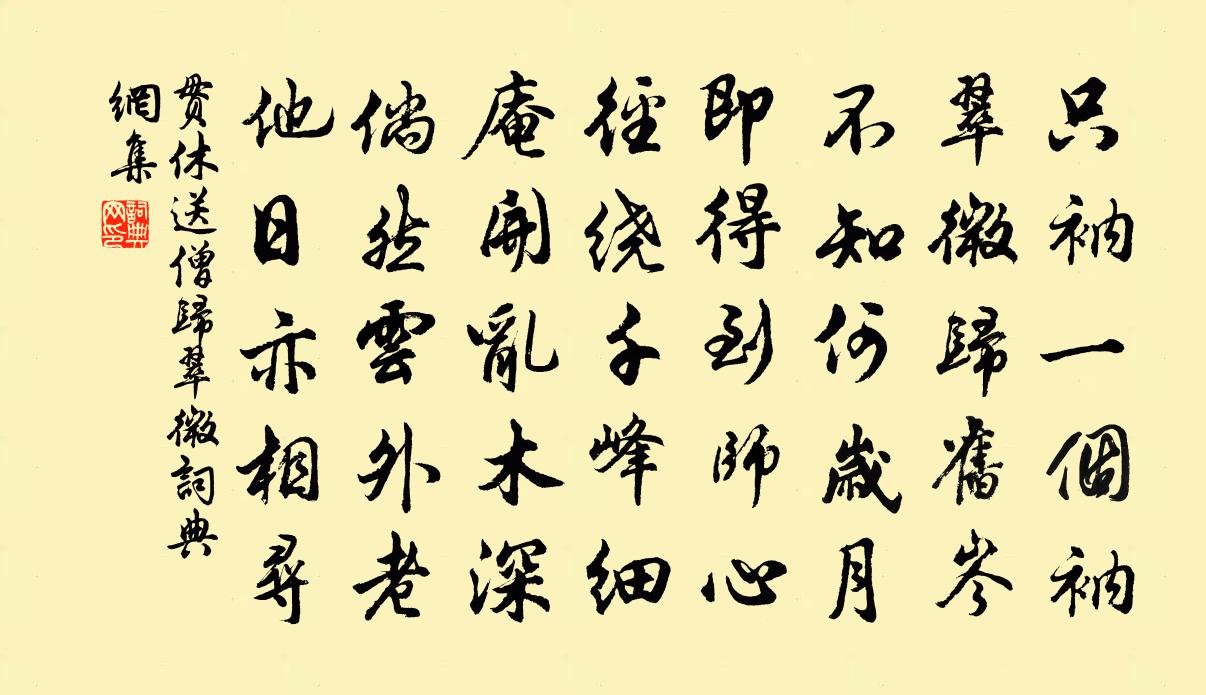 只衲一個衲
翠微歸舊岑
不知何歲月
即得到師心
徑繞千峰細
庵開亂木深
倘然雲外老
他日亦相尋
貫休送僧歸翠微詞典
網集
詞典
网印